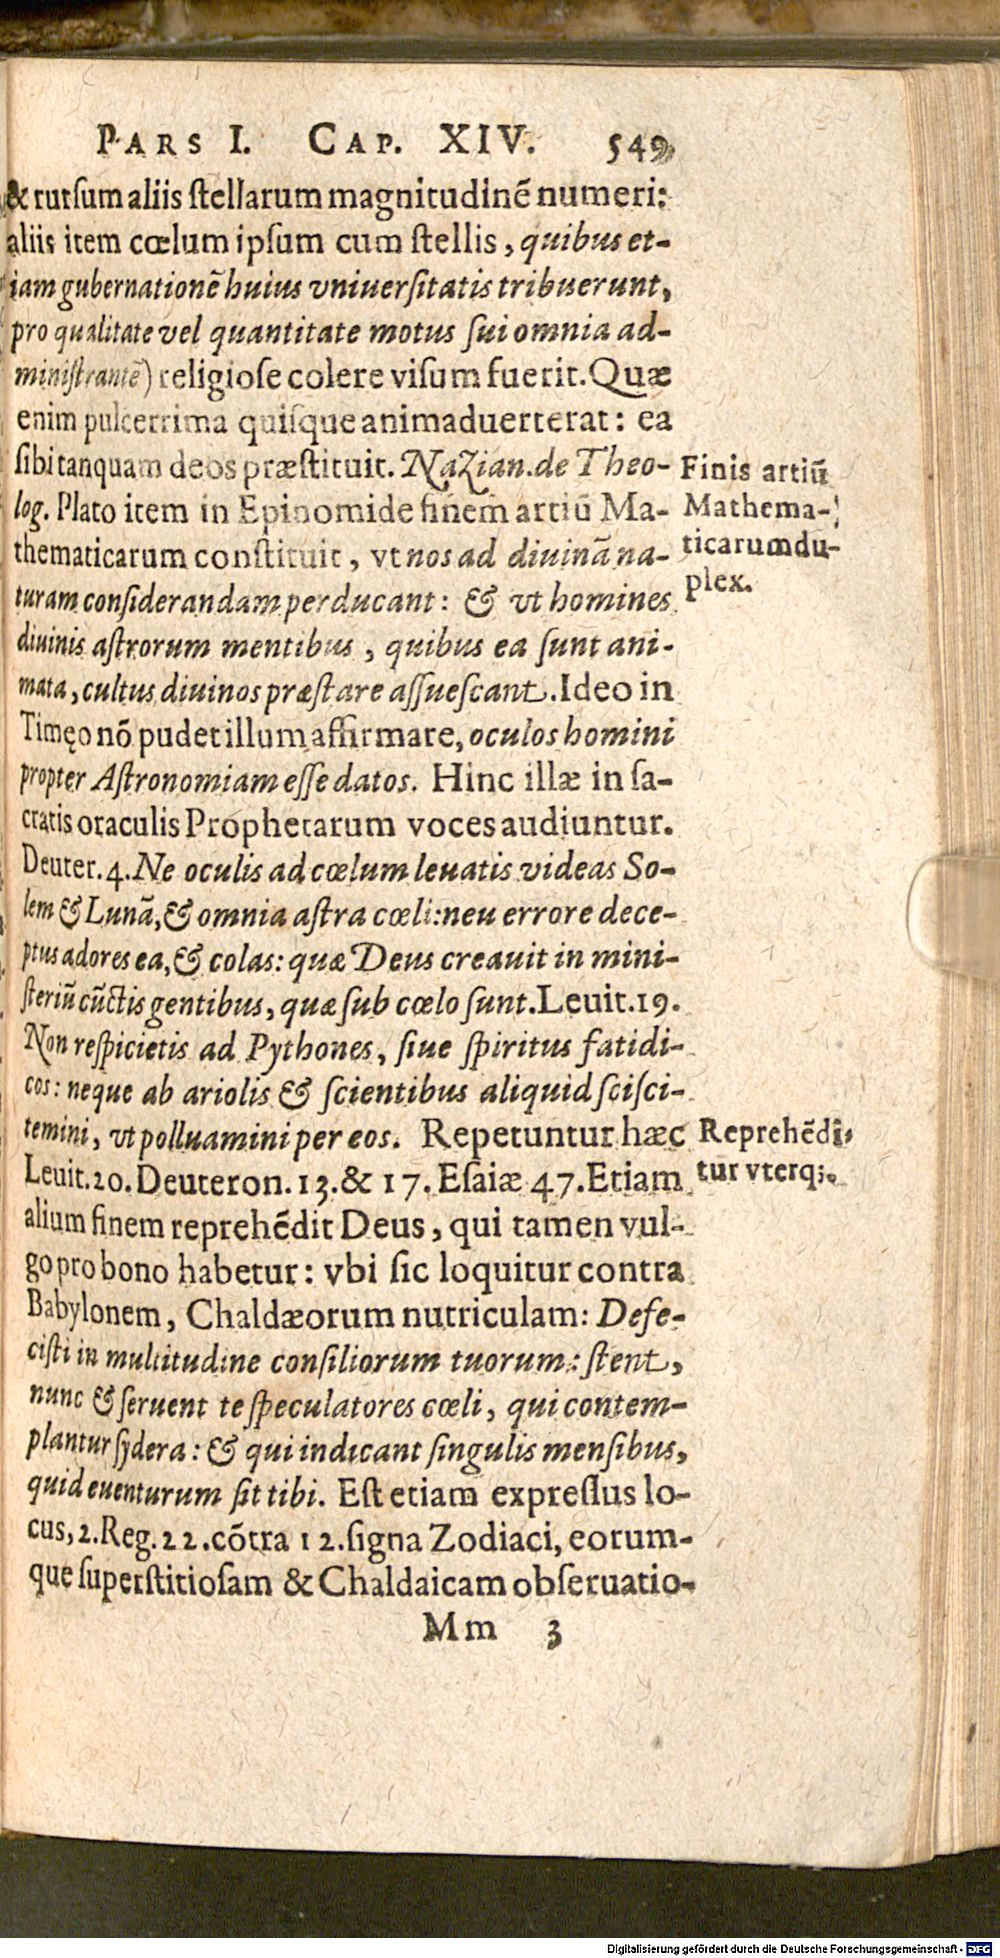 PARS I. CAP. XIV. 549
& rursum aliis stellarum magnitudinē numeri:
aliis item cœlum ipsum cum stellis, quibus et-
iam gubernationē huius vniuersitatis tribuerunt,
pro qualitate vel quantitate motus sui omnia ad-
ministrantē) religiose colere visum fuerit. Quæ
enim pulcerrima quisque animaduerterat: ea
sibi tanquam deos præstituit. Nazian. de Theo-
log. Plato item in Epinomide finem artiū Ma-
thematicarum constituit, vt nos ad diuinā na-
turam considerandam perducant: & vt homines
diuinis astrorum mentibus, quibus ea sunt ani-
mata, cultus diuinos præstare assuescant. Ideo in
Timęo nō pudet illum affirmare, oculos homini
propter Astronomiam esse datos. Hinc illæ in sa-
cratis oraculis Prophetarum voces audiuntur.
Deuter. 4. Ne oculis ad cœlum leuatis videas So-
lem & Lunā, & omnia astra cœli: neu errore dece-
ptus adores ea, & colas: quæ Deus creauit in mini-
steriū cūctis gentibus, quæ sub cœlo sunt. Leuit. 19.
Non respicietis ad Pythones, siue spiritus fatidi-
cos: neque ab ariolis & scientibus aliquid sciscí-
temini, vt polluamini per eos. Repetuntur hæc
Leuit. 20. Deuteron. 13. & 17. Esaiæ 47. Etiam
alium finem reprehēdit Deus, qui tamen vul-
go pro bono habetur: vbi sic loquitur contra
Babylonem, Chaldæorum nutriculam: Defe-
cisti in multitudine consiliorum tuorum: stent,
nunc & seruent te speculatores cœli, qui contem-
plantur sydera: & qui indicant singulis mensibus,
quid euenturum sit tibi. Est etiam expressus lo-
cus, 2. Reg. 22. cōtra 12. signa Zodiaci, eorum-
que superstitiosam & Chaldaicam obseruatio-
Mm 3
Finis artiū
Mathema-
ticarum du-
plex.
Reprehēdi-
tur vterq;.
Digitalisierung gefördert durch die Deutsche Forschungsgemeinschaft - DFG